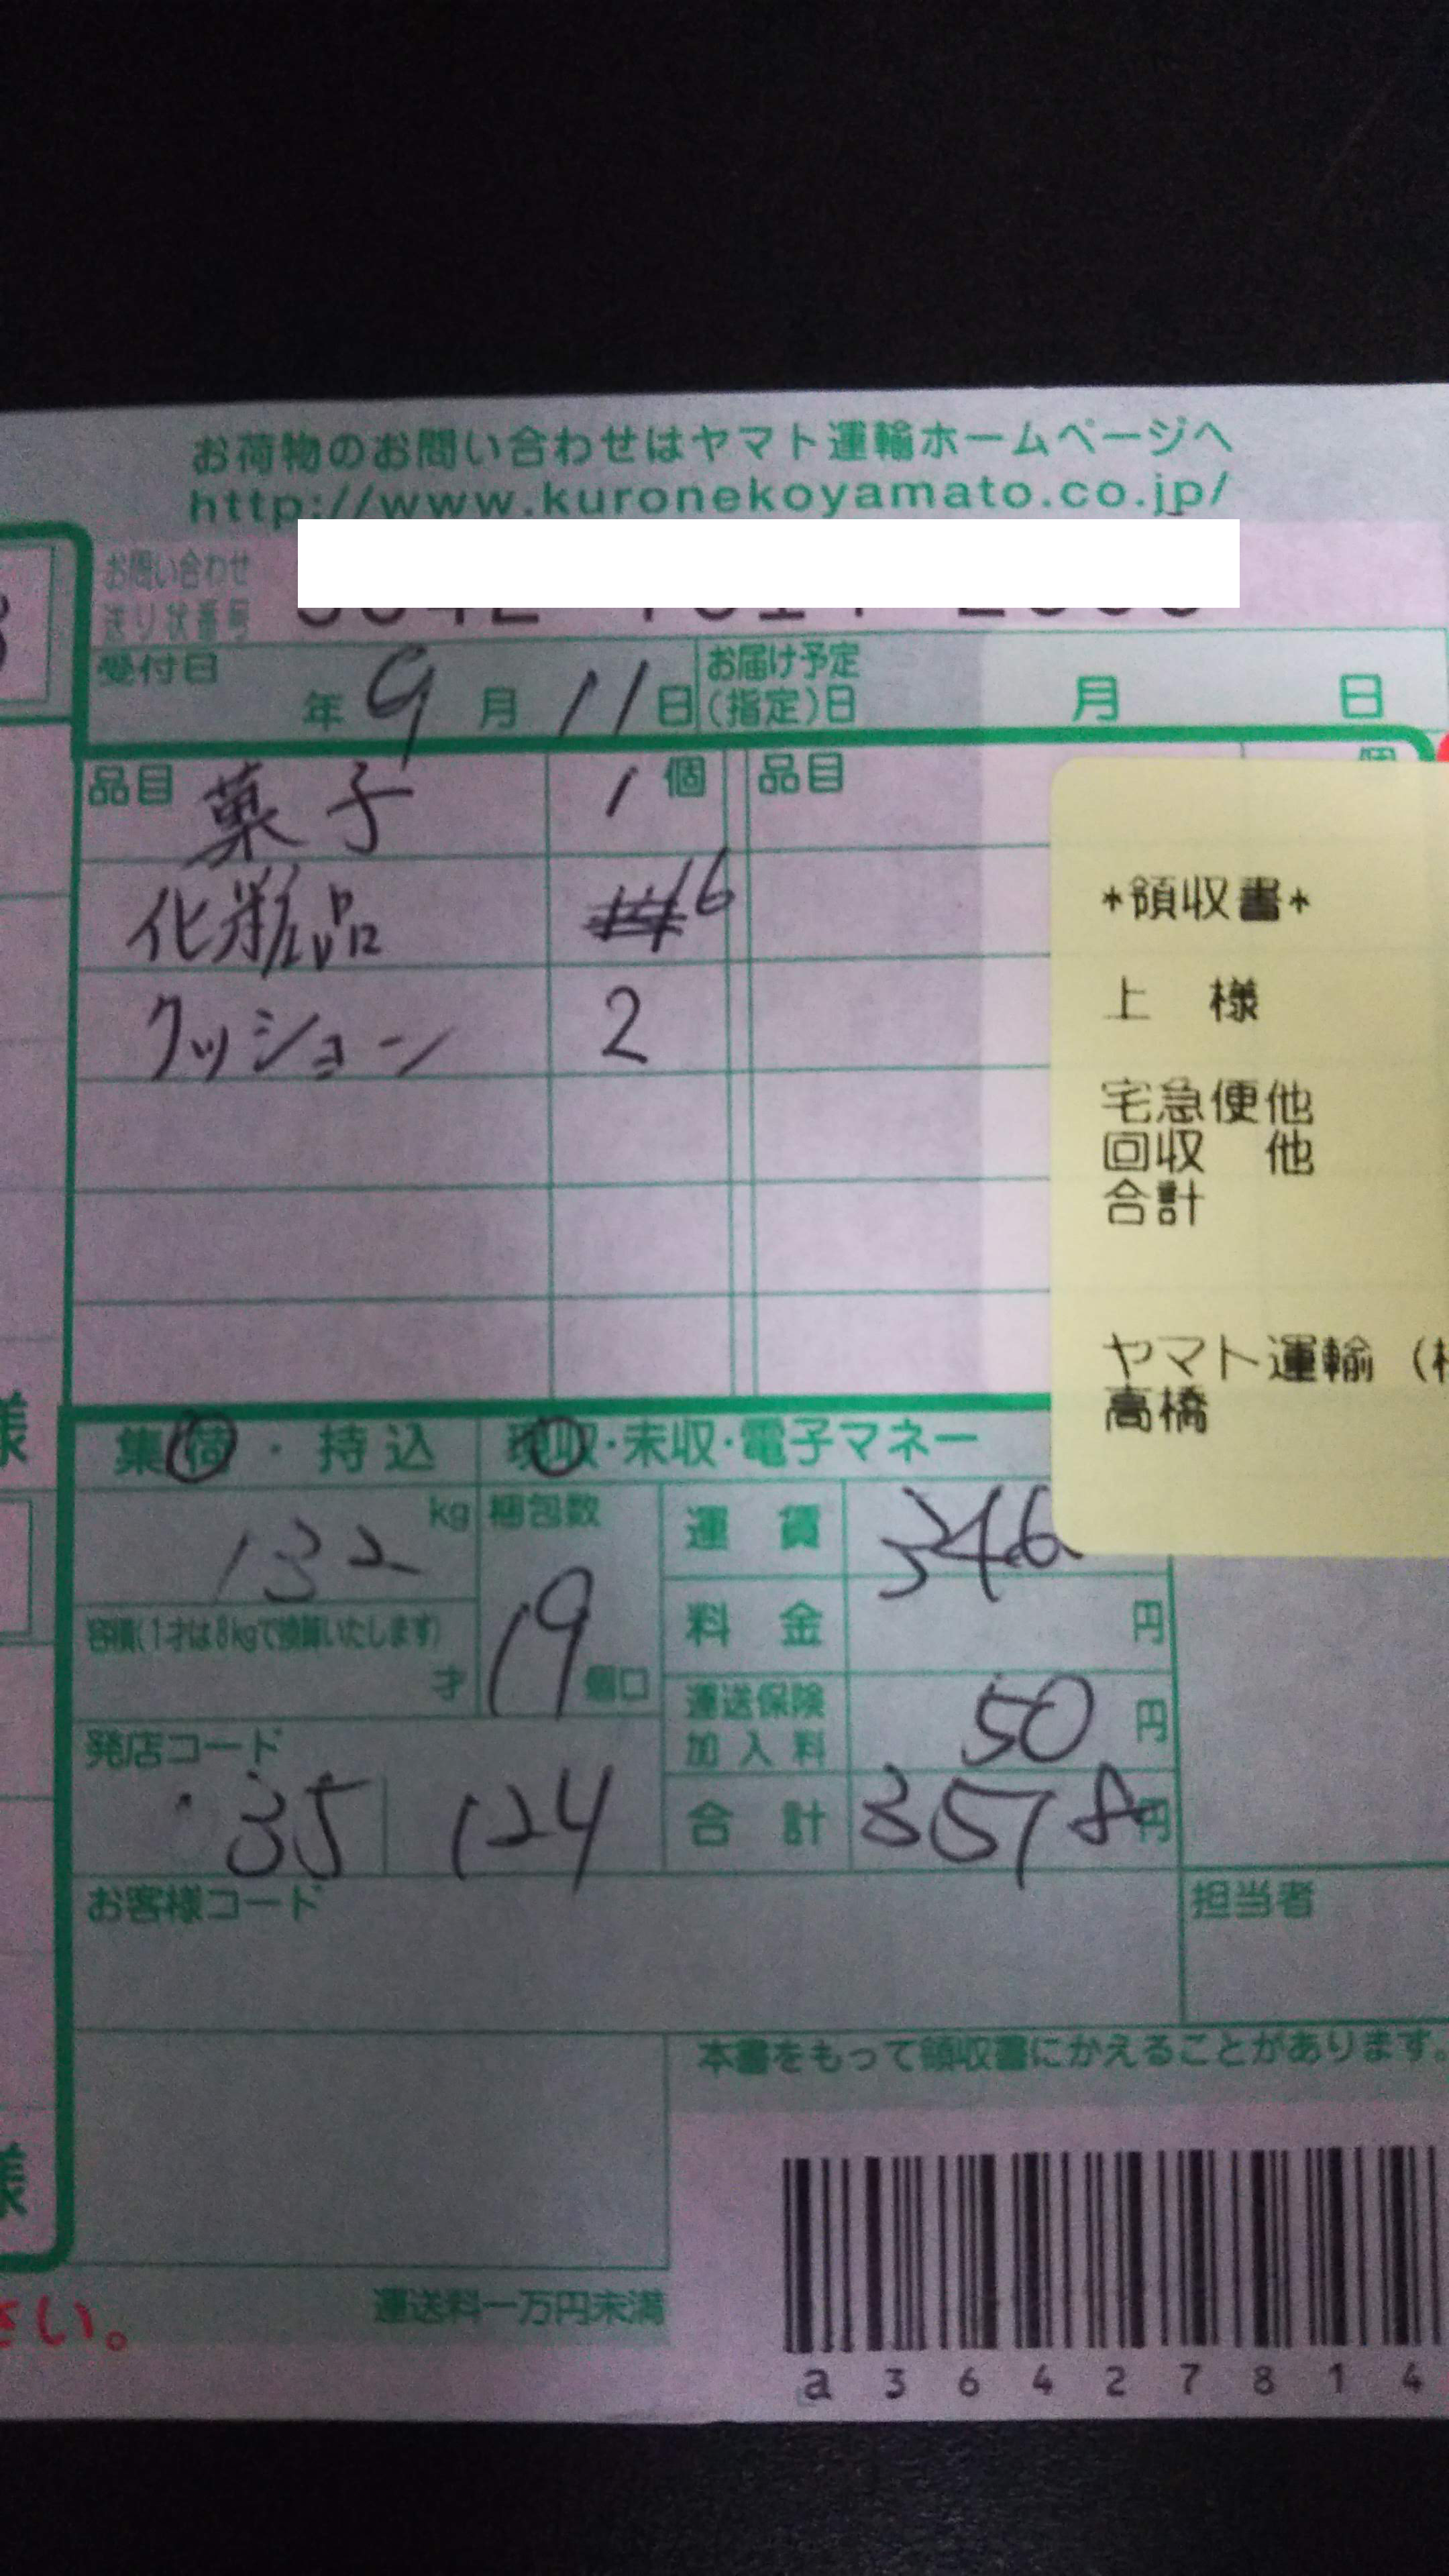 お荷物のお問い合わせはヤマト運輸ホームページへ
http://www.kuronekoyamato.co.jp/
お問い合わせ
送り状番号
受付日 年 9 月 11 日 お届け予定(指定)日 月 日
品目 菓子 1 個 品目 個
化粧品 16
クッション 2
*領収書*
上 様
宅急便他
回収 他
合計
ヤマト運輸(
高橋
様
集荷・持込 現収・未収・電子マネー
132 kg 梱包数 19 個口
容積(1才は8kgで換算いたします)
才
運賃 346
料金 円
運送保険加入料 50 円
発店コード 35 124
合計 3578 円
お客様コード 担当者
本書をもって領収書にかえることがあります。
様
さい。
運送料一万円未満
a36427814